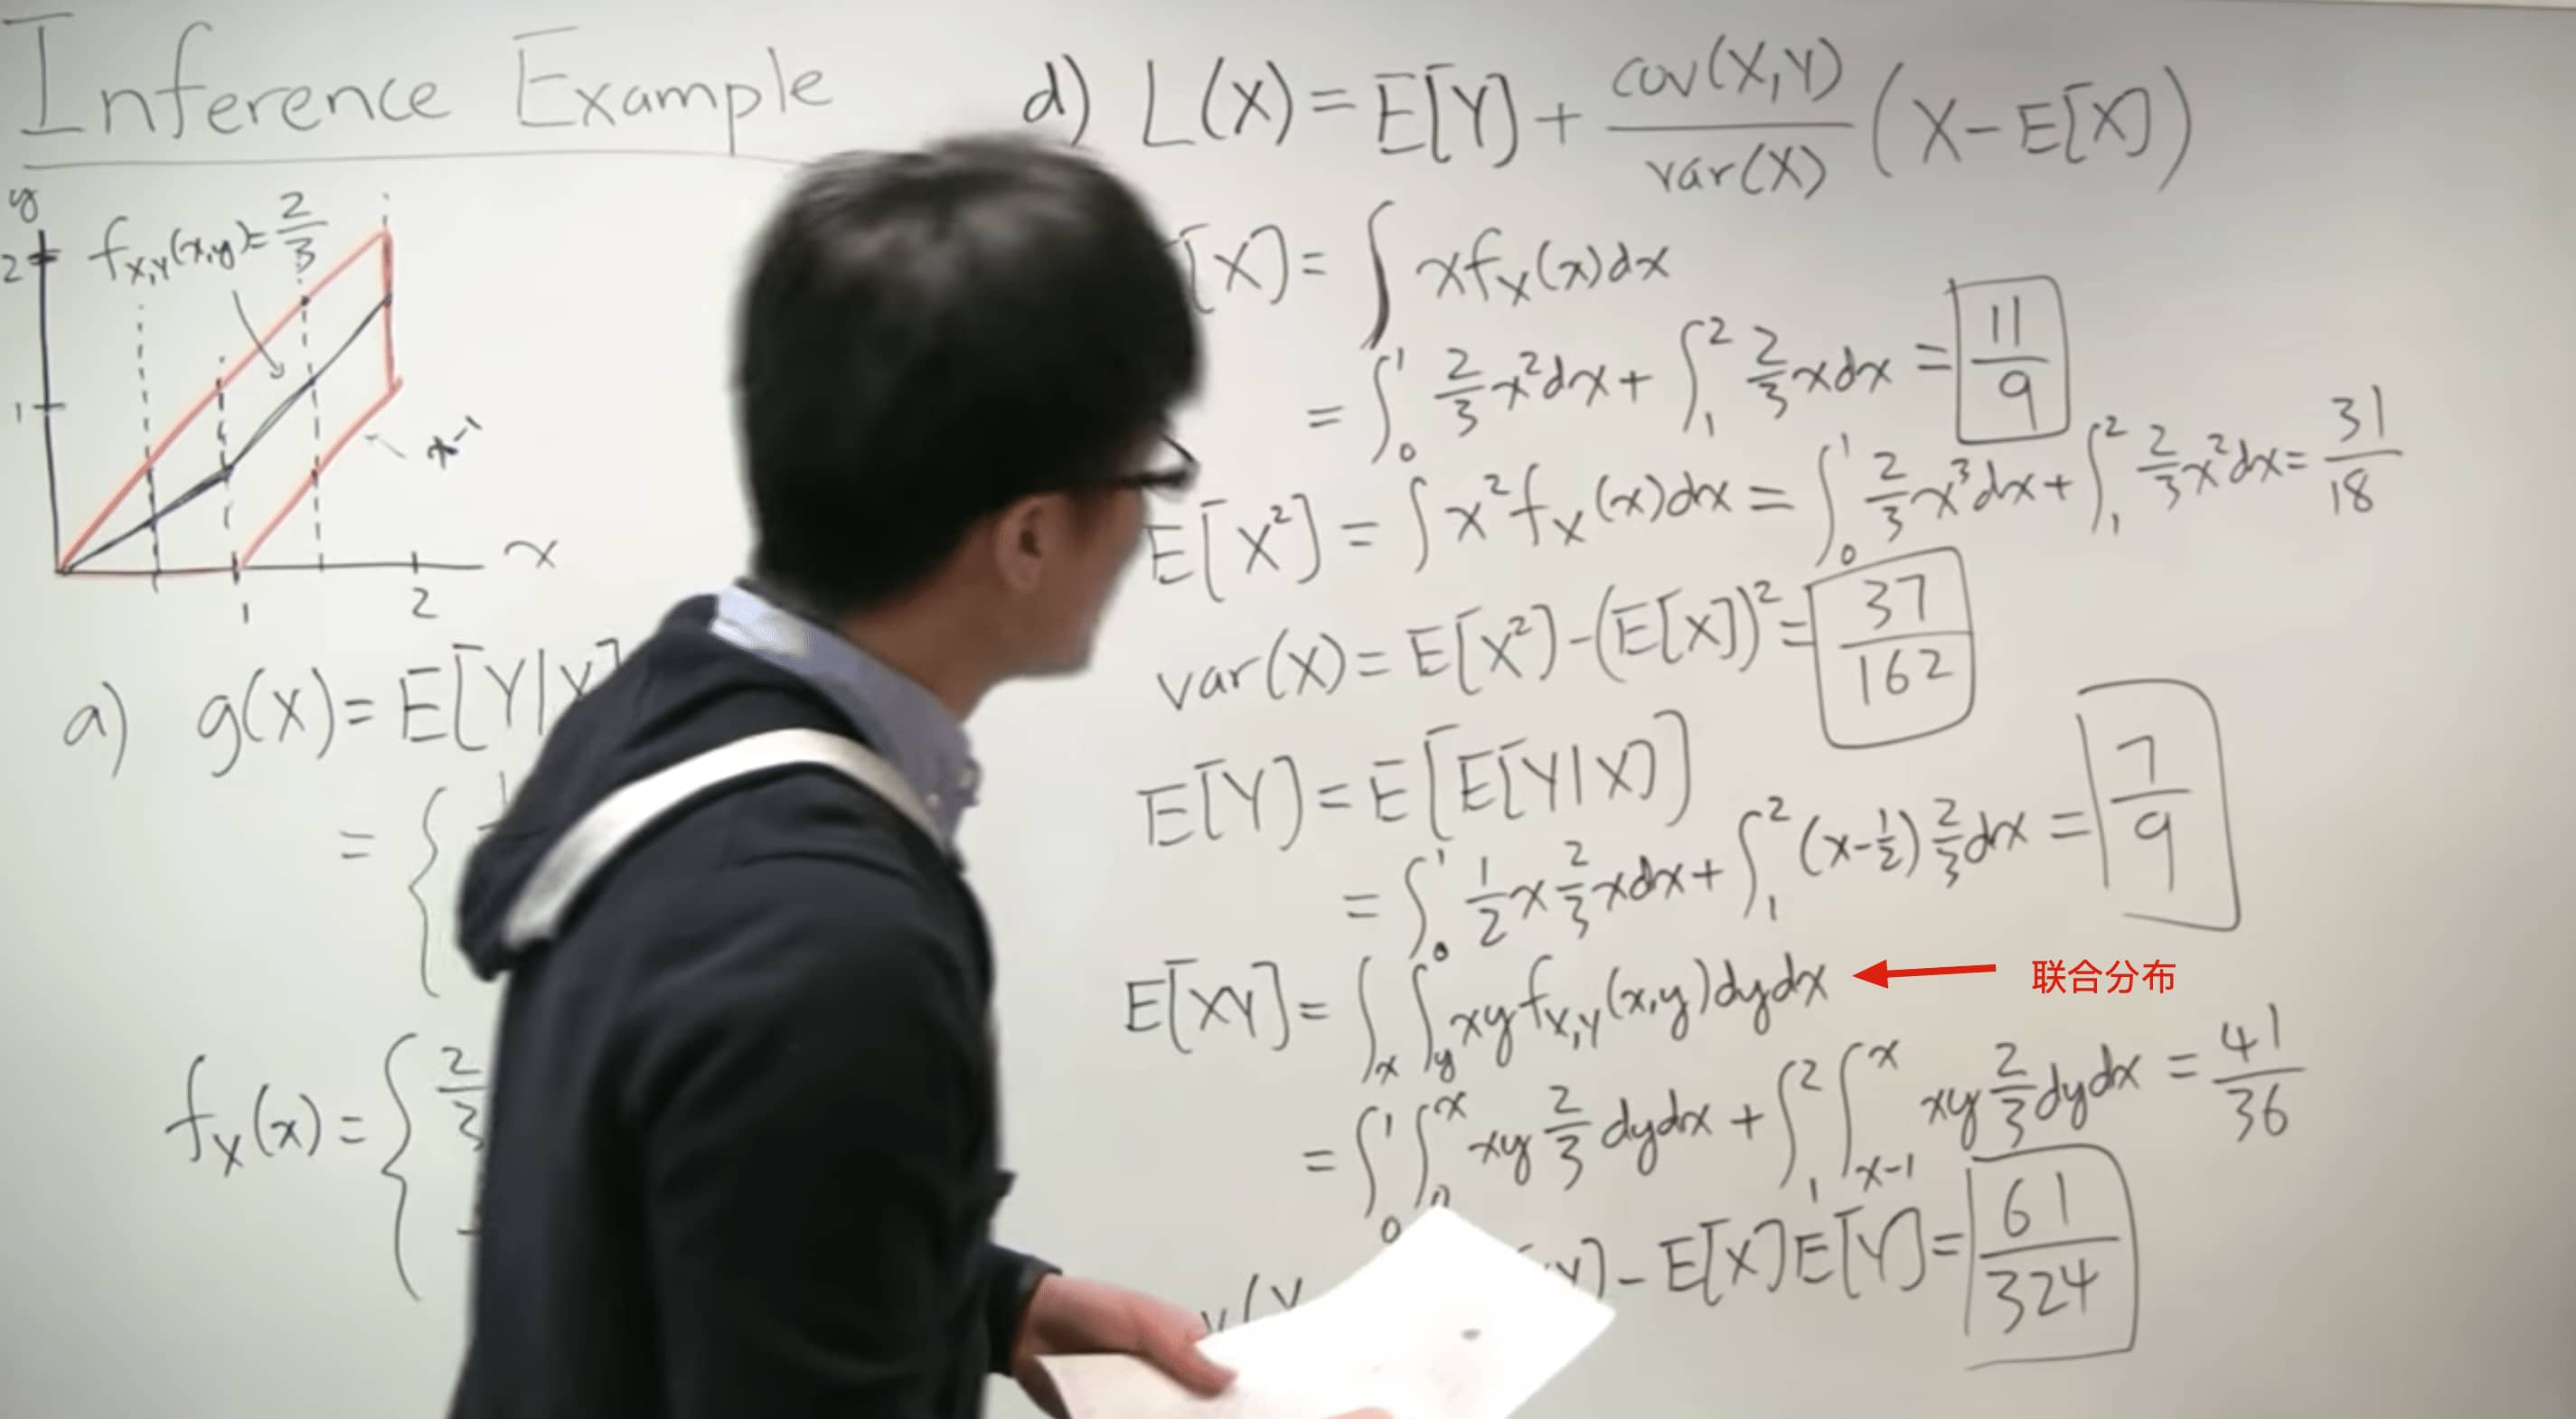 Inference Example
y
2
f_{X,Y}(x,y)=2/3
1
x-1
x
1
2
a) g(X)=E[Y|X]
= {
f_X(x)= { 2/3
d) L(X)=E[Y]+ cov(X,Y)/var(X) (X-E[X])
[X]= ∫ x f_X(x)dx
= ∫_0^1 2/3 x²dx + ∫_1^2 2/3 xdx = 11/9
E[X²] = ∫ x² f_X(x)dx = ∫_0^1 2/3 x³dx + ∫_1^2 2/3 x²dx = 31/18
var(X) = E[X²]-(E[X])² = 37/162
E[Y] = E[E[Y|X]]
= ∫_0^1 1/2 x 2/3 xdx + ∫_1^2 (x-1/2) 2/3 dx = 7/9
E[XY] = ∫_x ∫_y xy f_{X,Y}(x,y)dydx
联合分布
= ∫_0^1 ∫_0^x xy 2/3 dydx + ∫_1^2 ∫_{x-1}^x xy 2/3 dydx = 41/36
Y]-E[X]E[Y] = 61/324